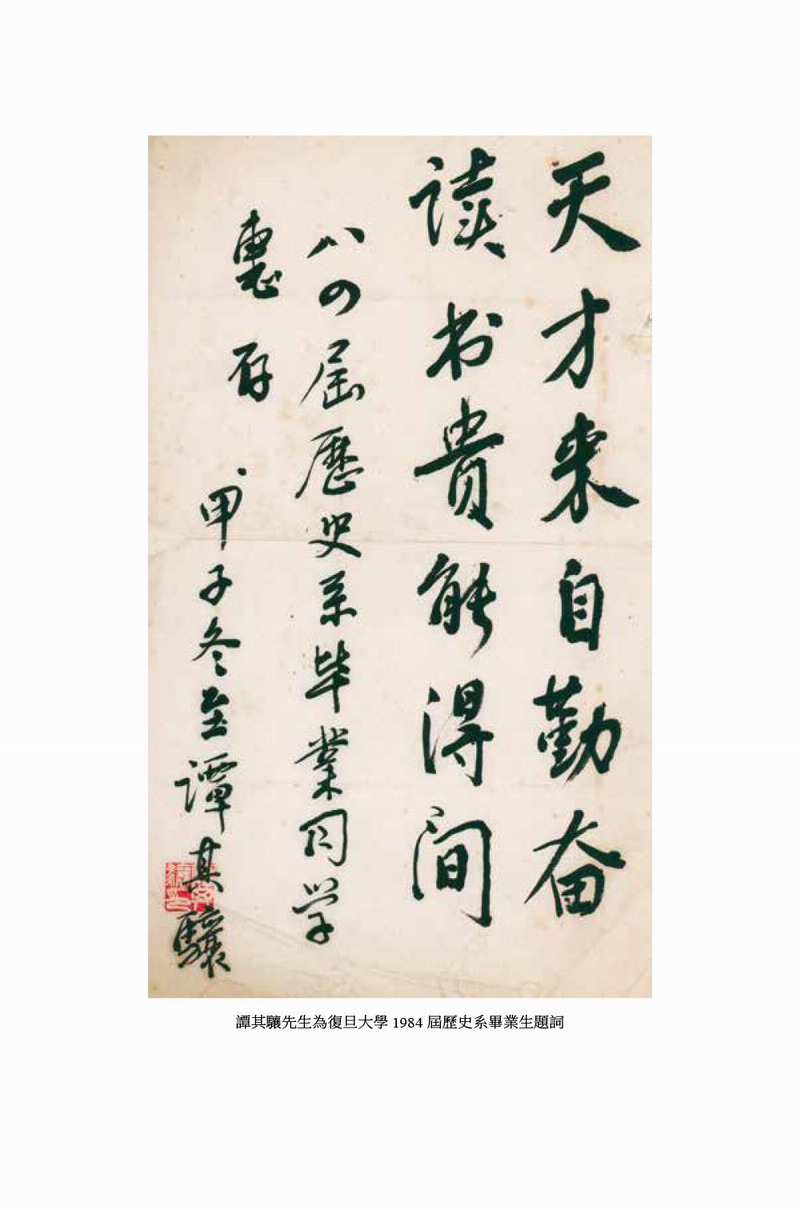 天才来自勤奋
读书贵能得间
八四届歷史系毕業同学
惠存
甲子冬至譚其驤
譚其驤先生為復旦大學 1984 屆歷史系畢業生題詞